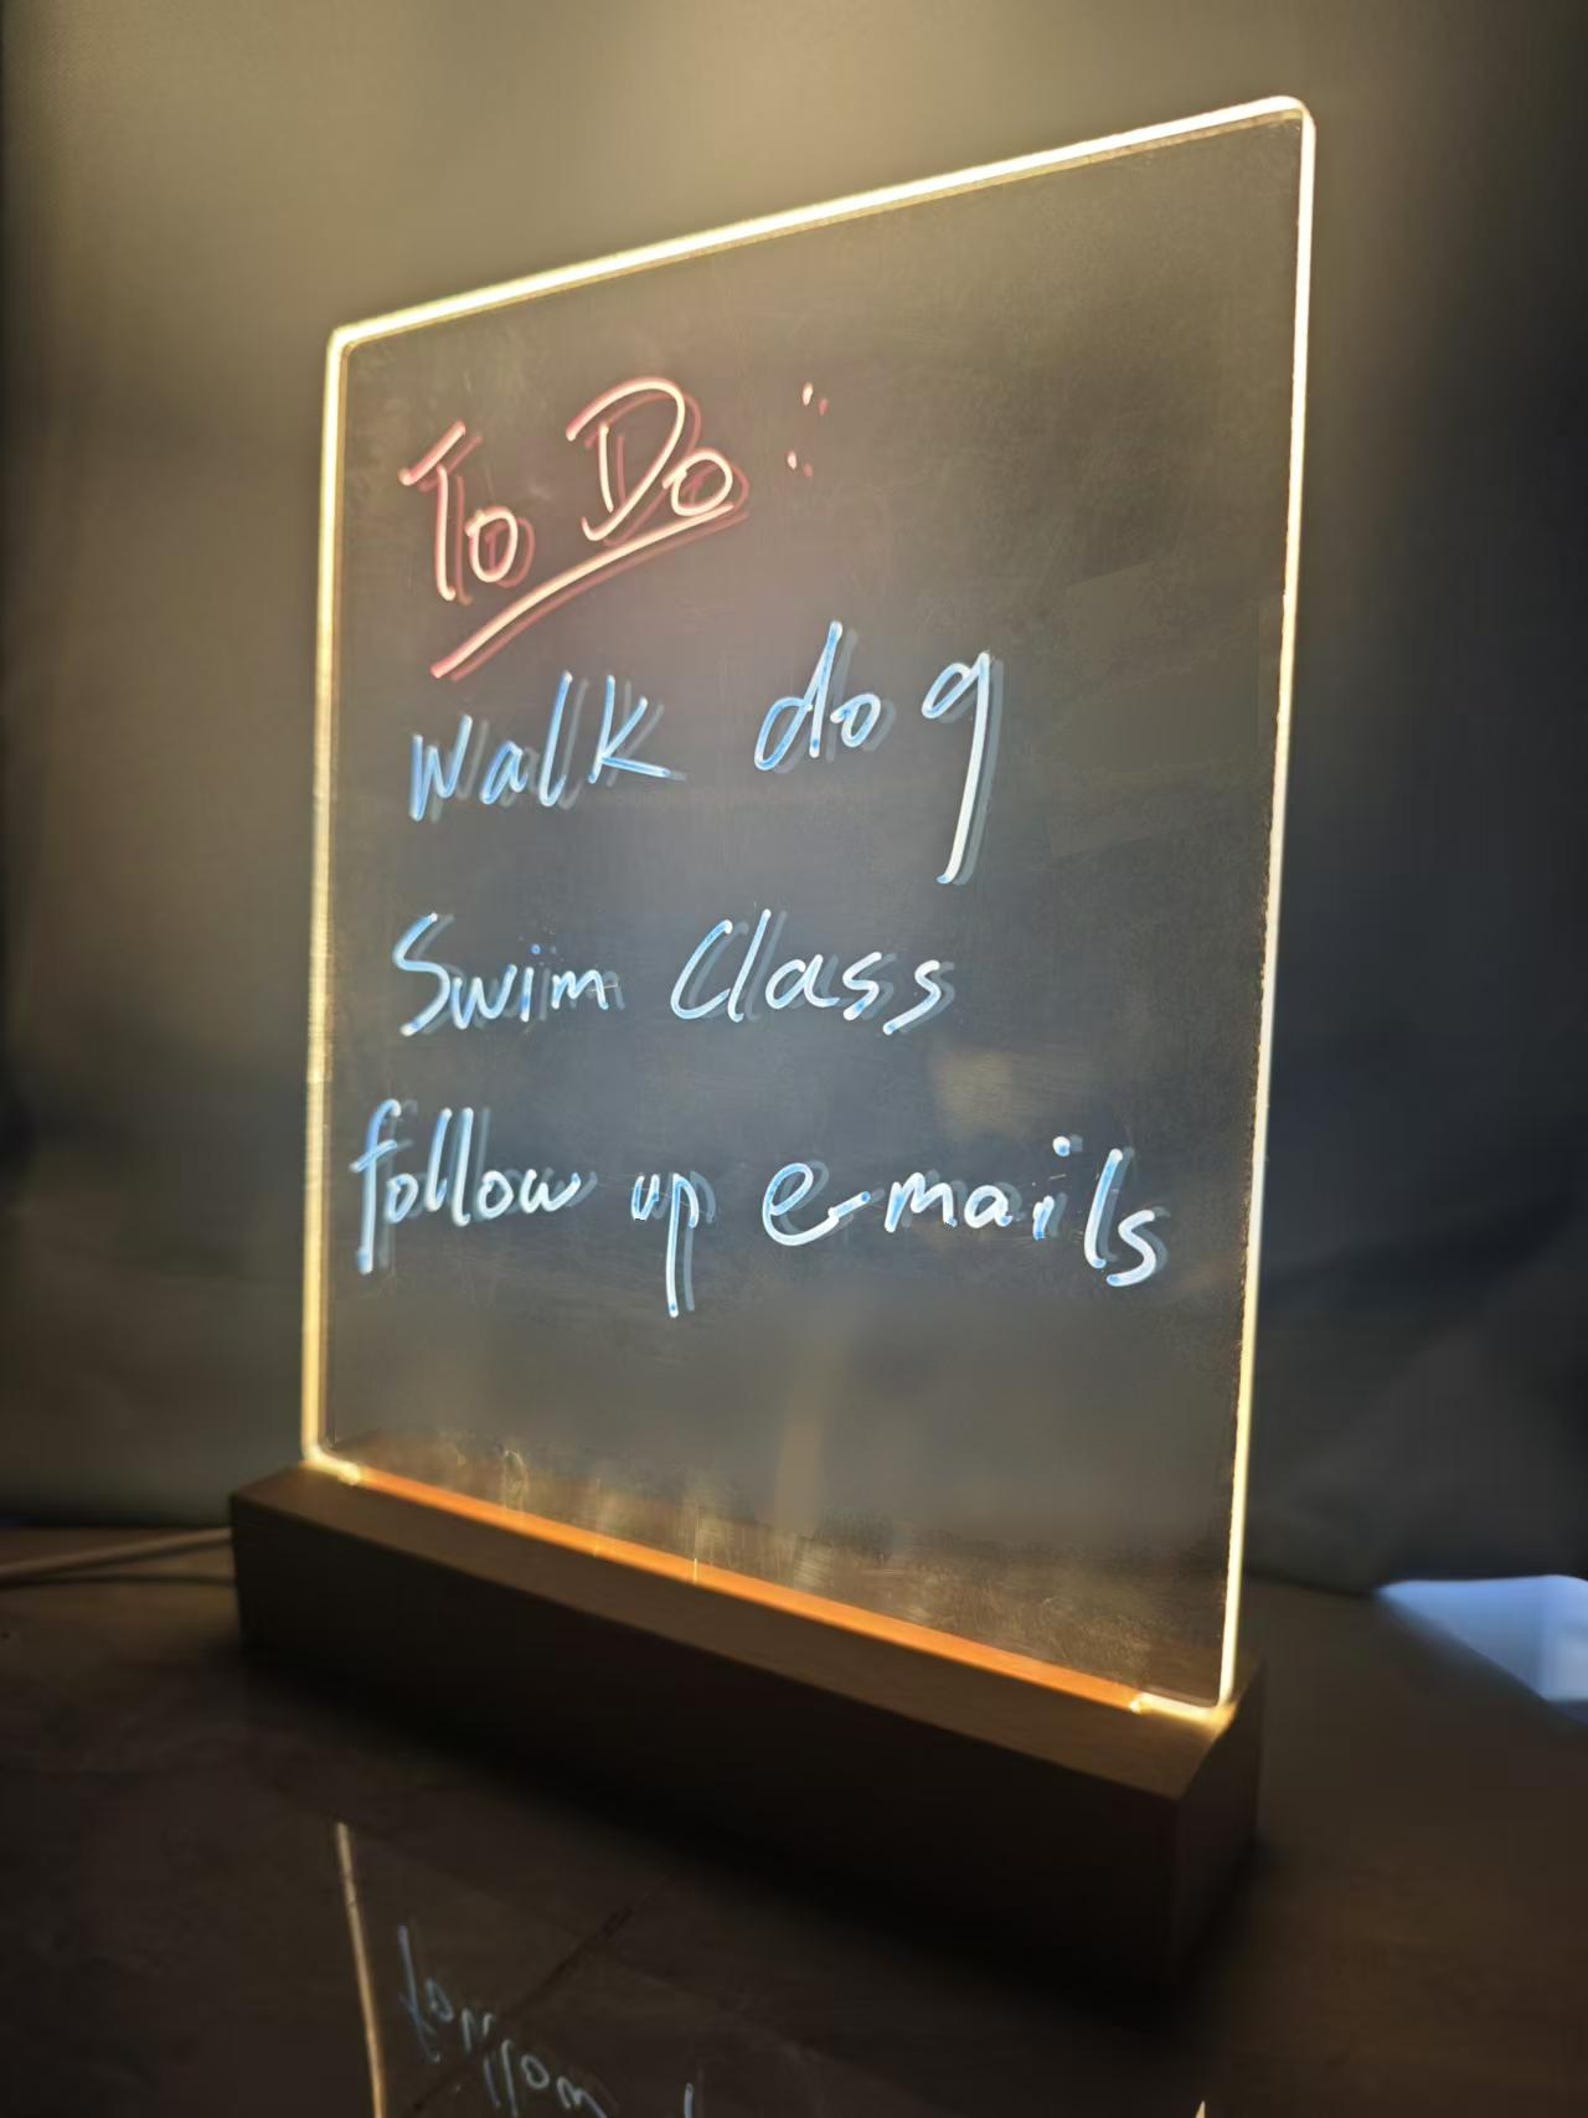 To Do :
walk dog
Swim Class
follow up e-mails